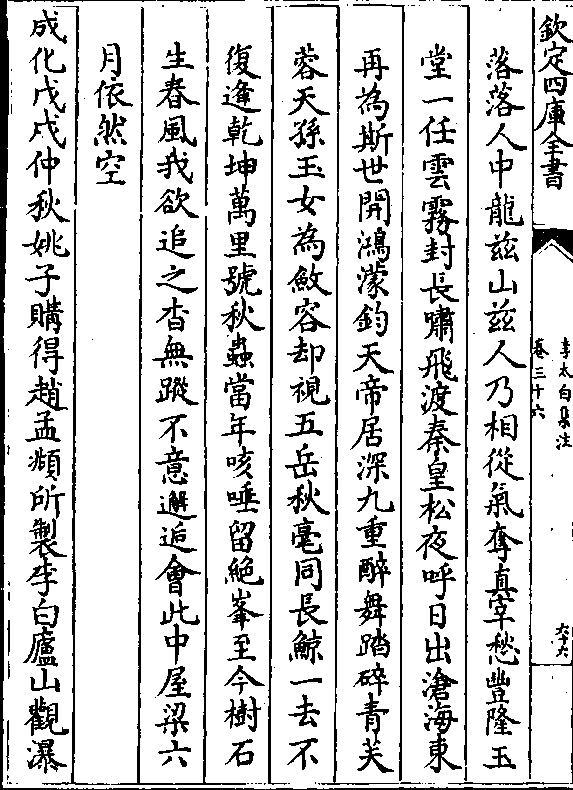 欽定四庫全書
李太白集注
卷三十六
六十六
落落人中龍兹山兹人乃相從氣奪真宰愁豐隆玉
堂一任雲霧封長嘯飛渡秦皇松夜呼日出滄海東
再為斯世開鴻濛鈞天帝居深九重醉舞踏碎青芙
蓉天孫玉女為斂容却視五岳秋毫同長鯨一去不
復逢乾坤萬里號秋蟲當年咳唾留絶峯至今樹石
生春風我欲追之杳無蹤不意邂逅會此中屋梁六
月依然空
成化戊戌仲秋姚子購得趙孟頫所製李白廬山觀瀑